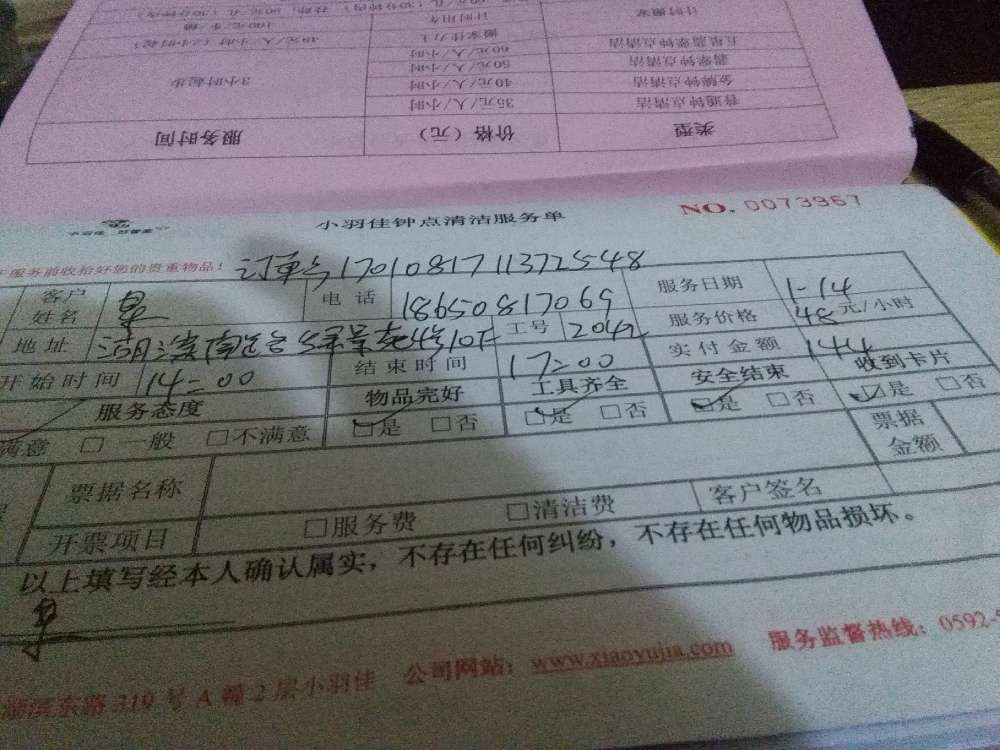 类型 价格（元） 服务时间
普通钟点清洁 35元/人/小时
金牌钟点清洁 40元/人/小时 3小时起步
翡翠钟点清洁 50元/人/小时
五星翡翠钟点清洁 60元/人/小时
搬家佳力士
计时搬家 计时用车
小羽佳钟点清洁服务单
NO. 0073967
服务前收拾好您的贵重物品！
订单号170108171137 2548
客户姓名 电话 18650817069 服务日期 1-14
地址 工号 2042 服务价格 48元/小时
开始时间 14=00 结束时间 17=00 实付金额 144
服务态度 物品完好 工具齐全 安全结束 收到卡片
满意 □ 一般 □不满意 □是 □否 □是 □否 □是 □否 □是 □否
票据名称 票据金额
开票项目 □服务费 □清洁费 客户签名
以上填写经本人确认属实，不存在任何纠纷，不存在任何物品损坏。
湖滨东路319号A幢2层小羽佳 公司网站：www.xiaoyujia.com 服务监督热线：0592-